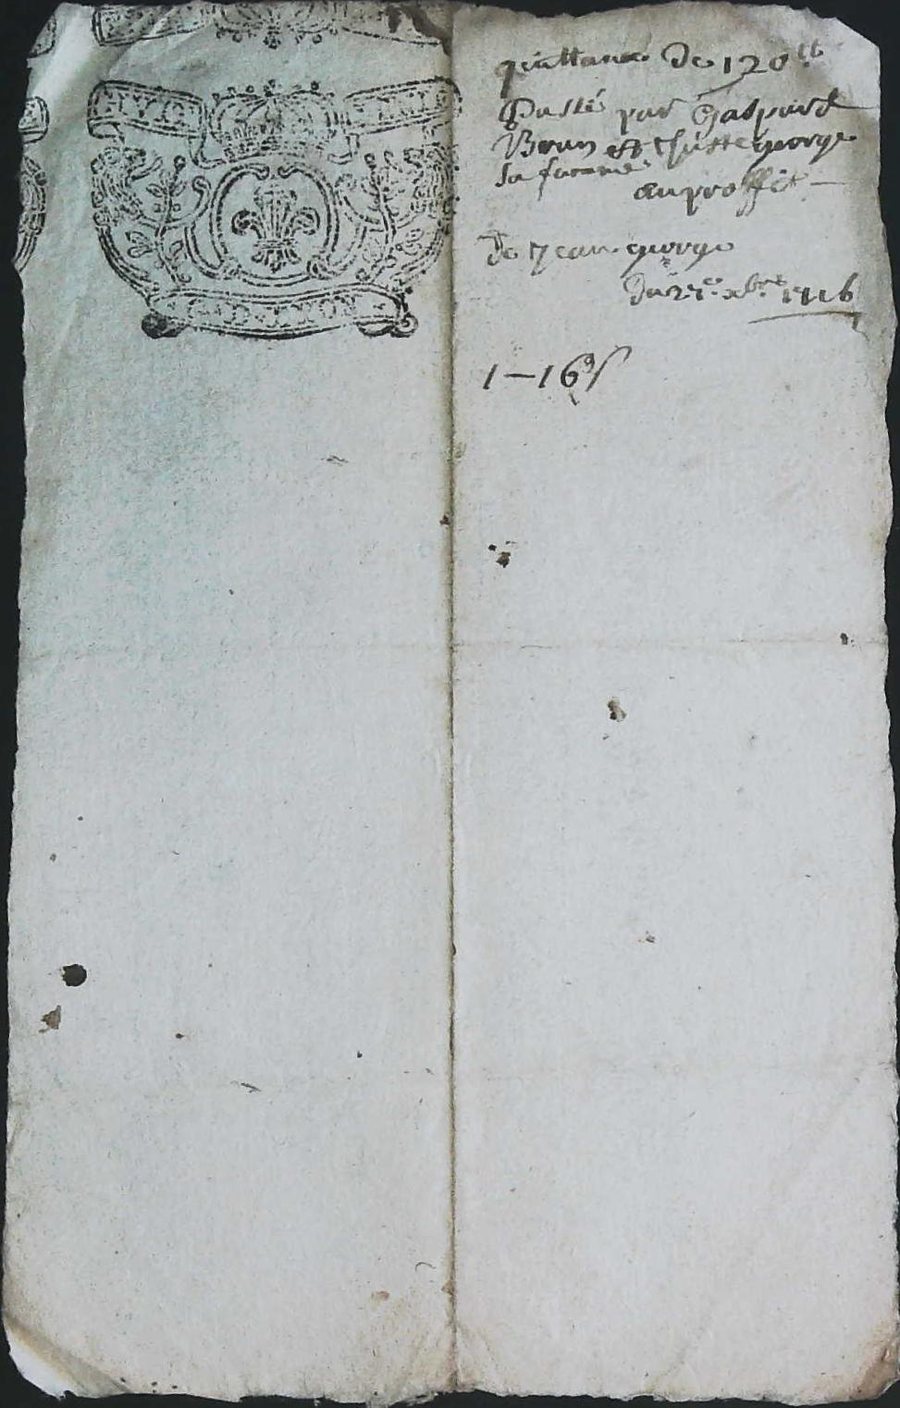 quittance de 120 tt
Passé par Gaspard
Brun et george
sa famme
au proffit
de Jean george
du xbre 1716
1—16 s